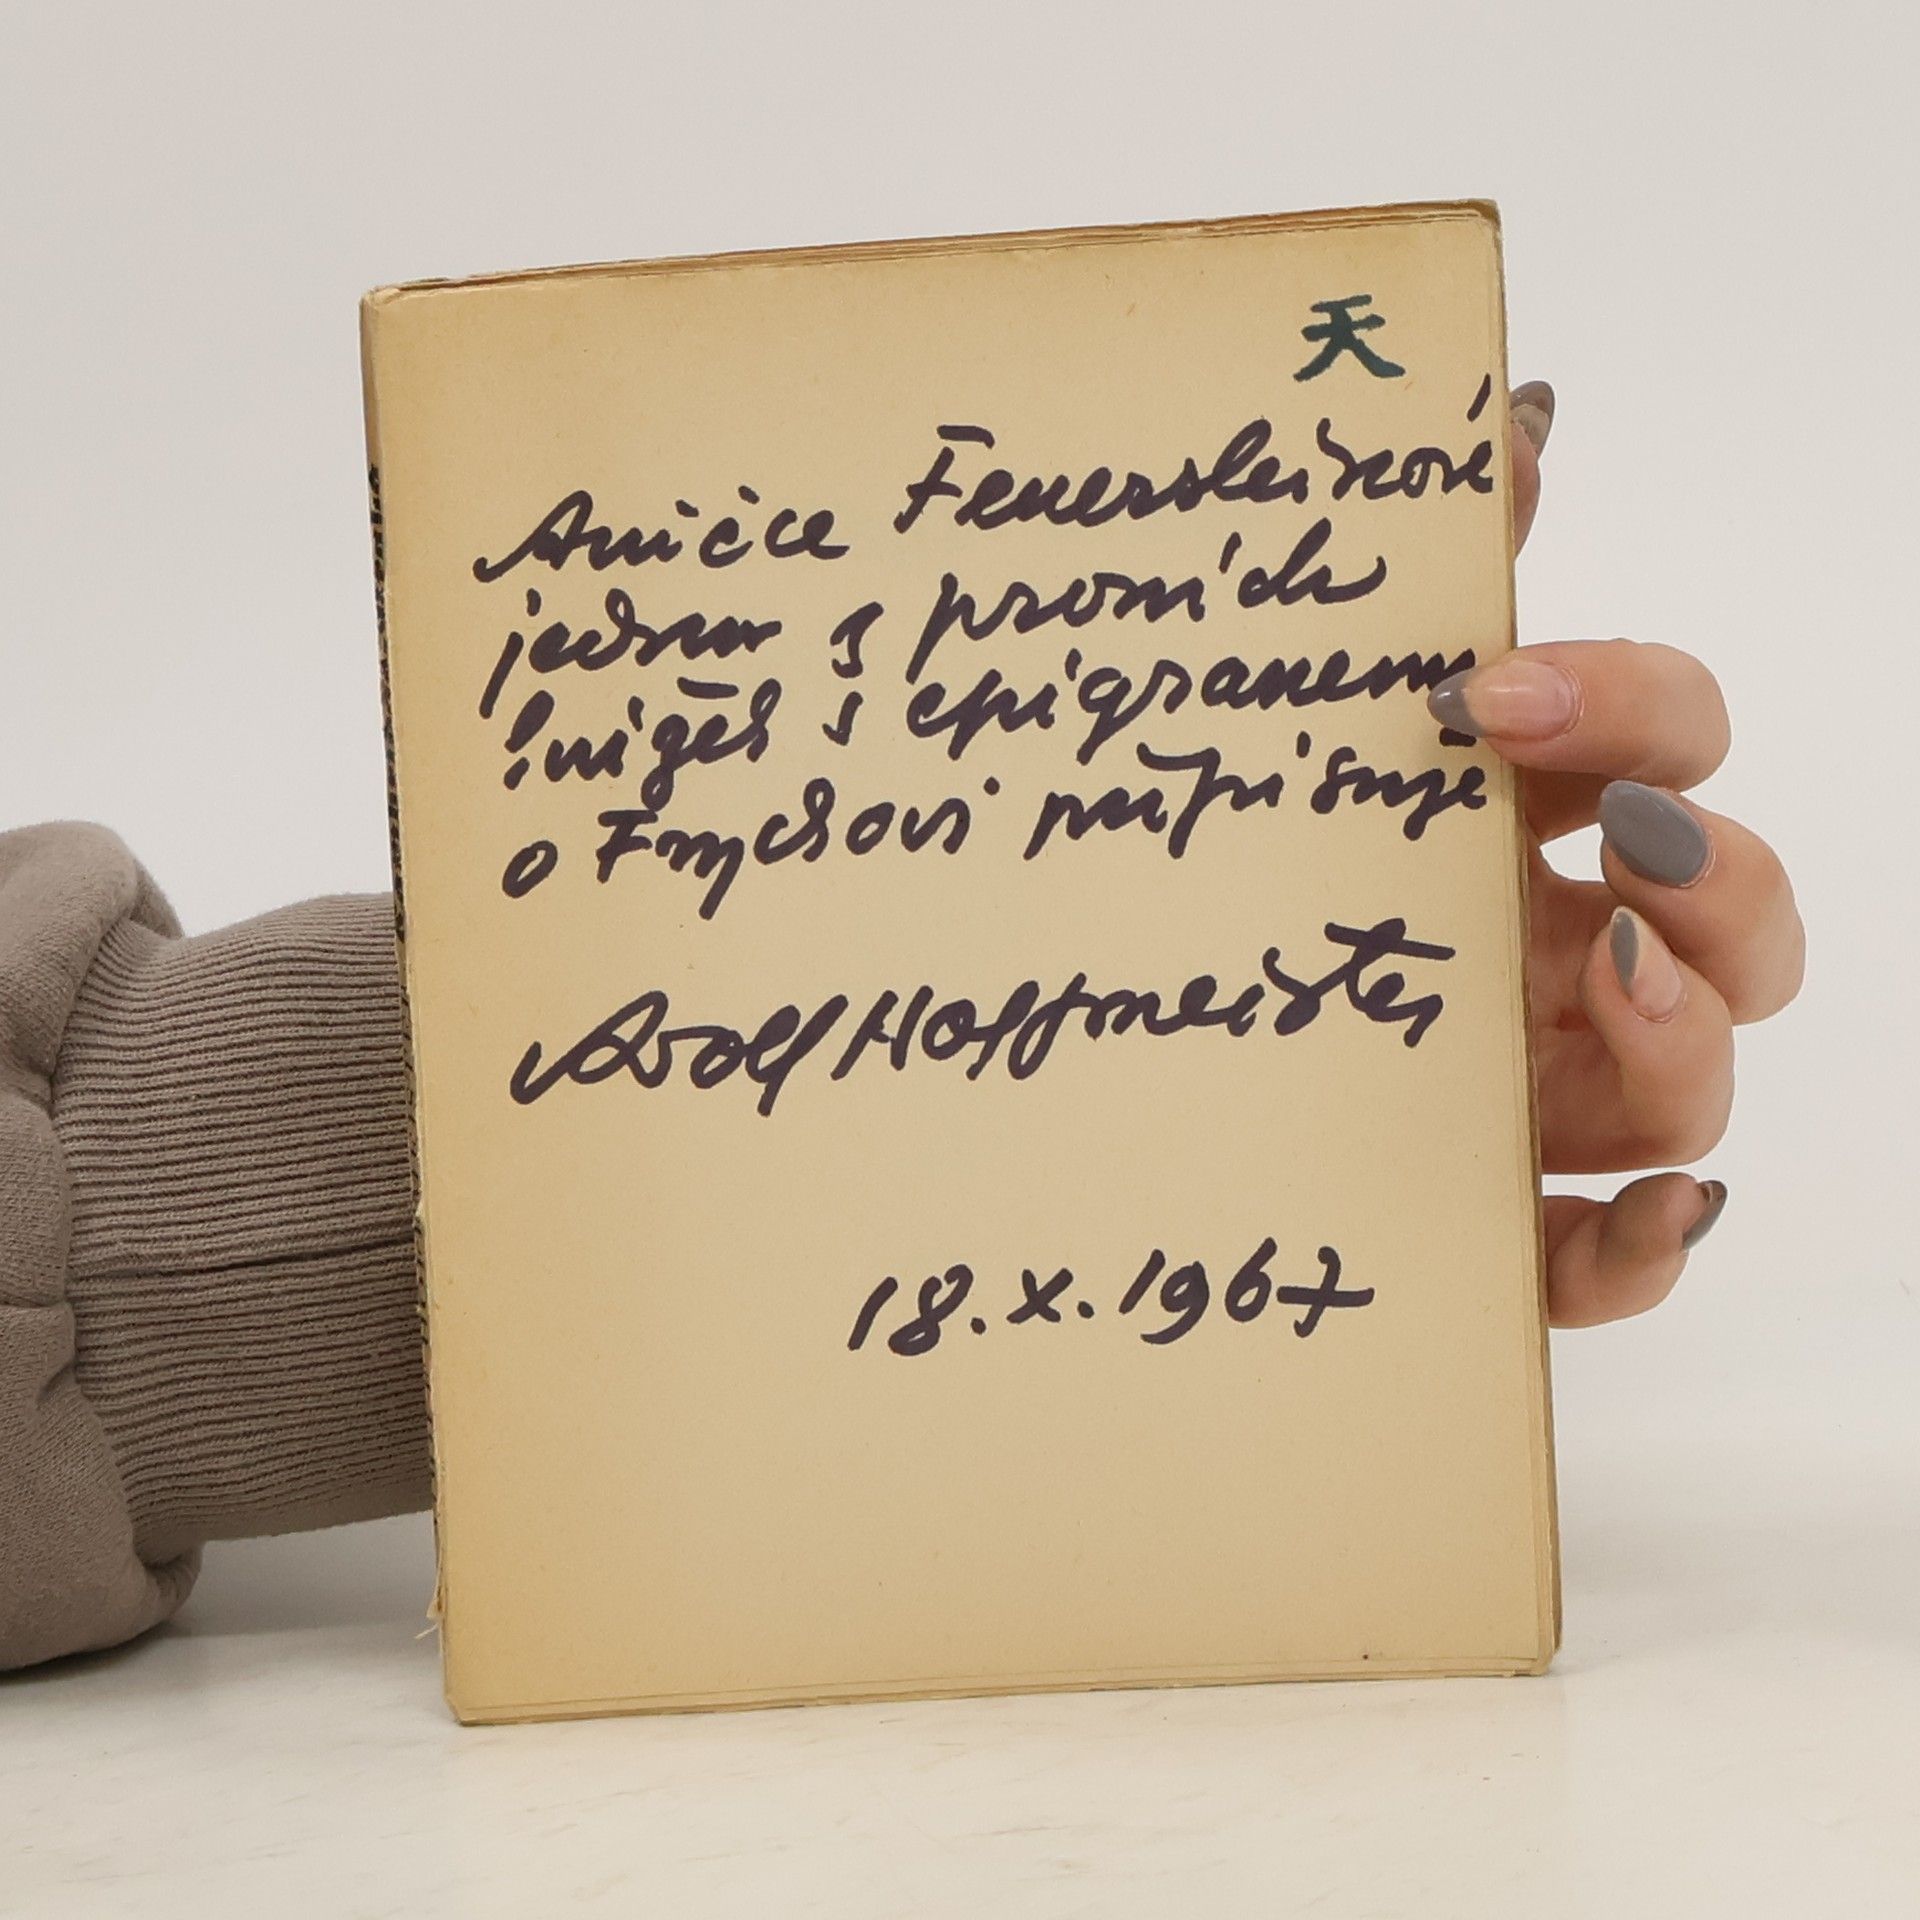 天
Aničce Feuersteinové
jednu z prvních
knížek s epigramem
o Frychovi připisuje
Adolf Hoffmeister
18.X.1967